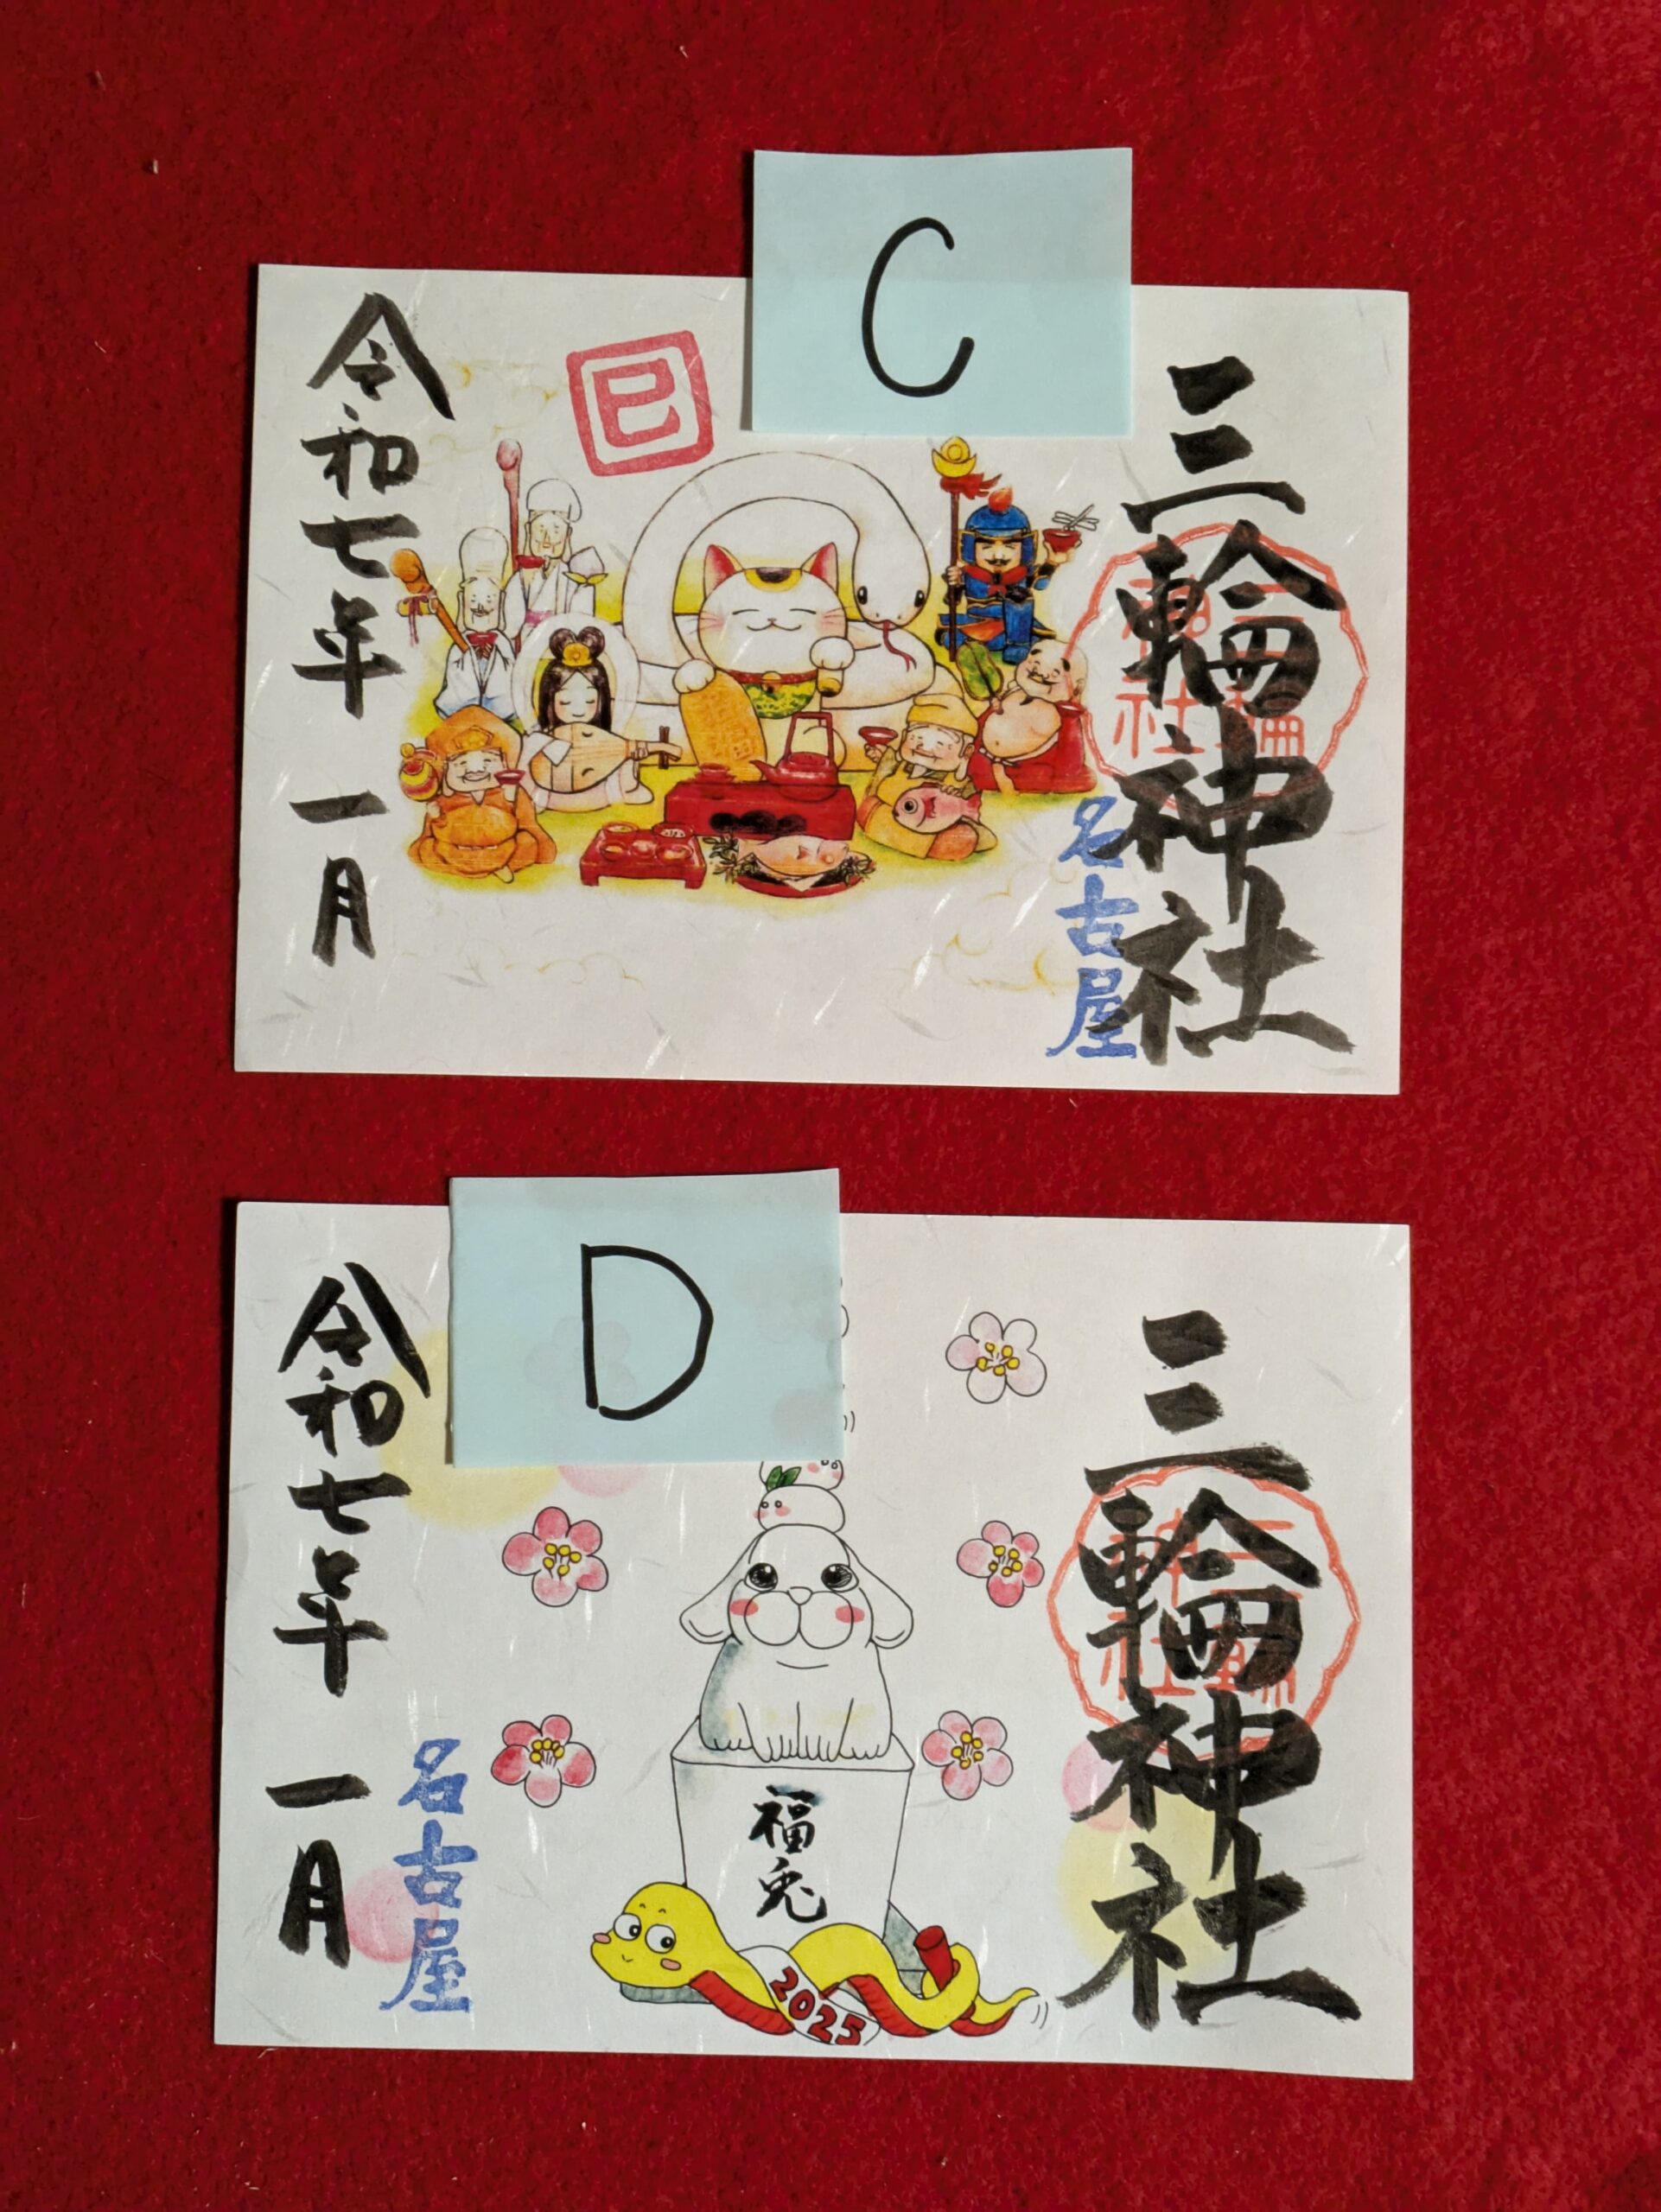 C
三輪神社
名古屋
巳
令和七年 一月
D
三輪神社
福兎
2025
名古屋
令和七年 一月